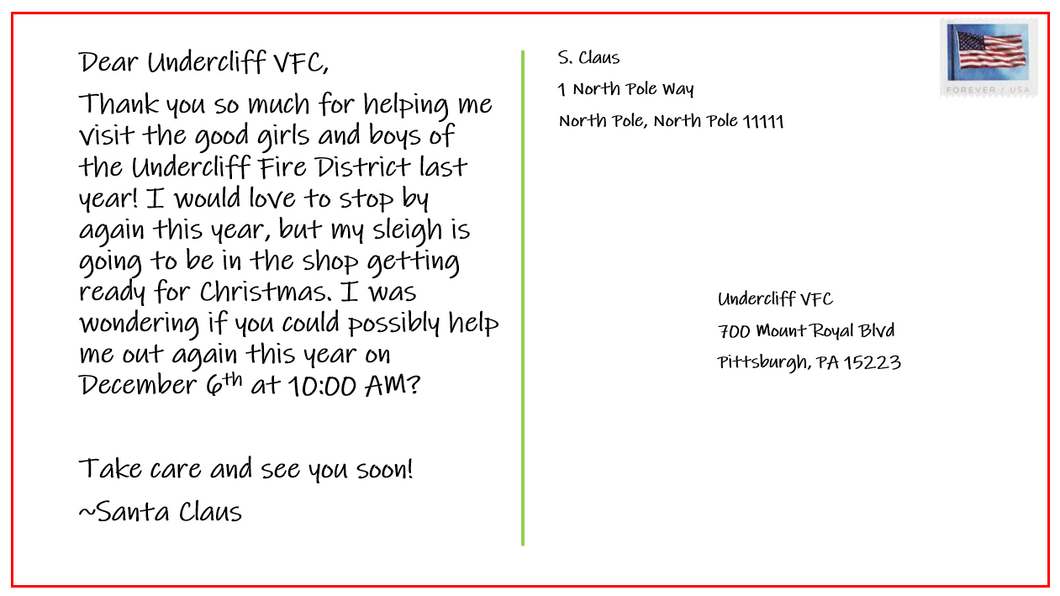 Dear Undercliff VFC,
Thank you so much for helping me
visit the good girls and boys of
the Undercliff Fire District last
year! I would love to stop by
again this year, but my sleigh is
going to be in the shop getting
ready for Christmas. I was
wondering if you could possibly help
me out again this year on
December 6th at 10:00 AM?
Take care and see you soon!
~Santa Claus
S. Claus
1 North Pole Way
North Pole, North Pole 11111
FOREVER / USA
Undercliff VFC
700 Mount Royal Blvd
Pittsburgh, PA 15223